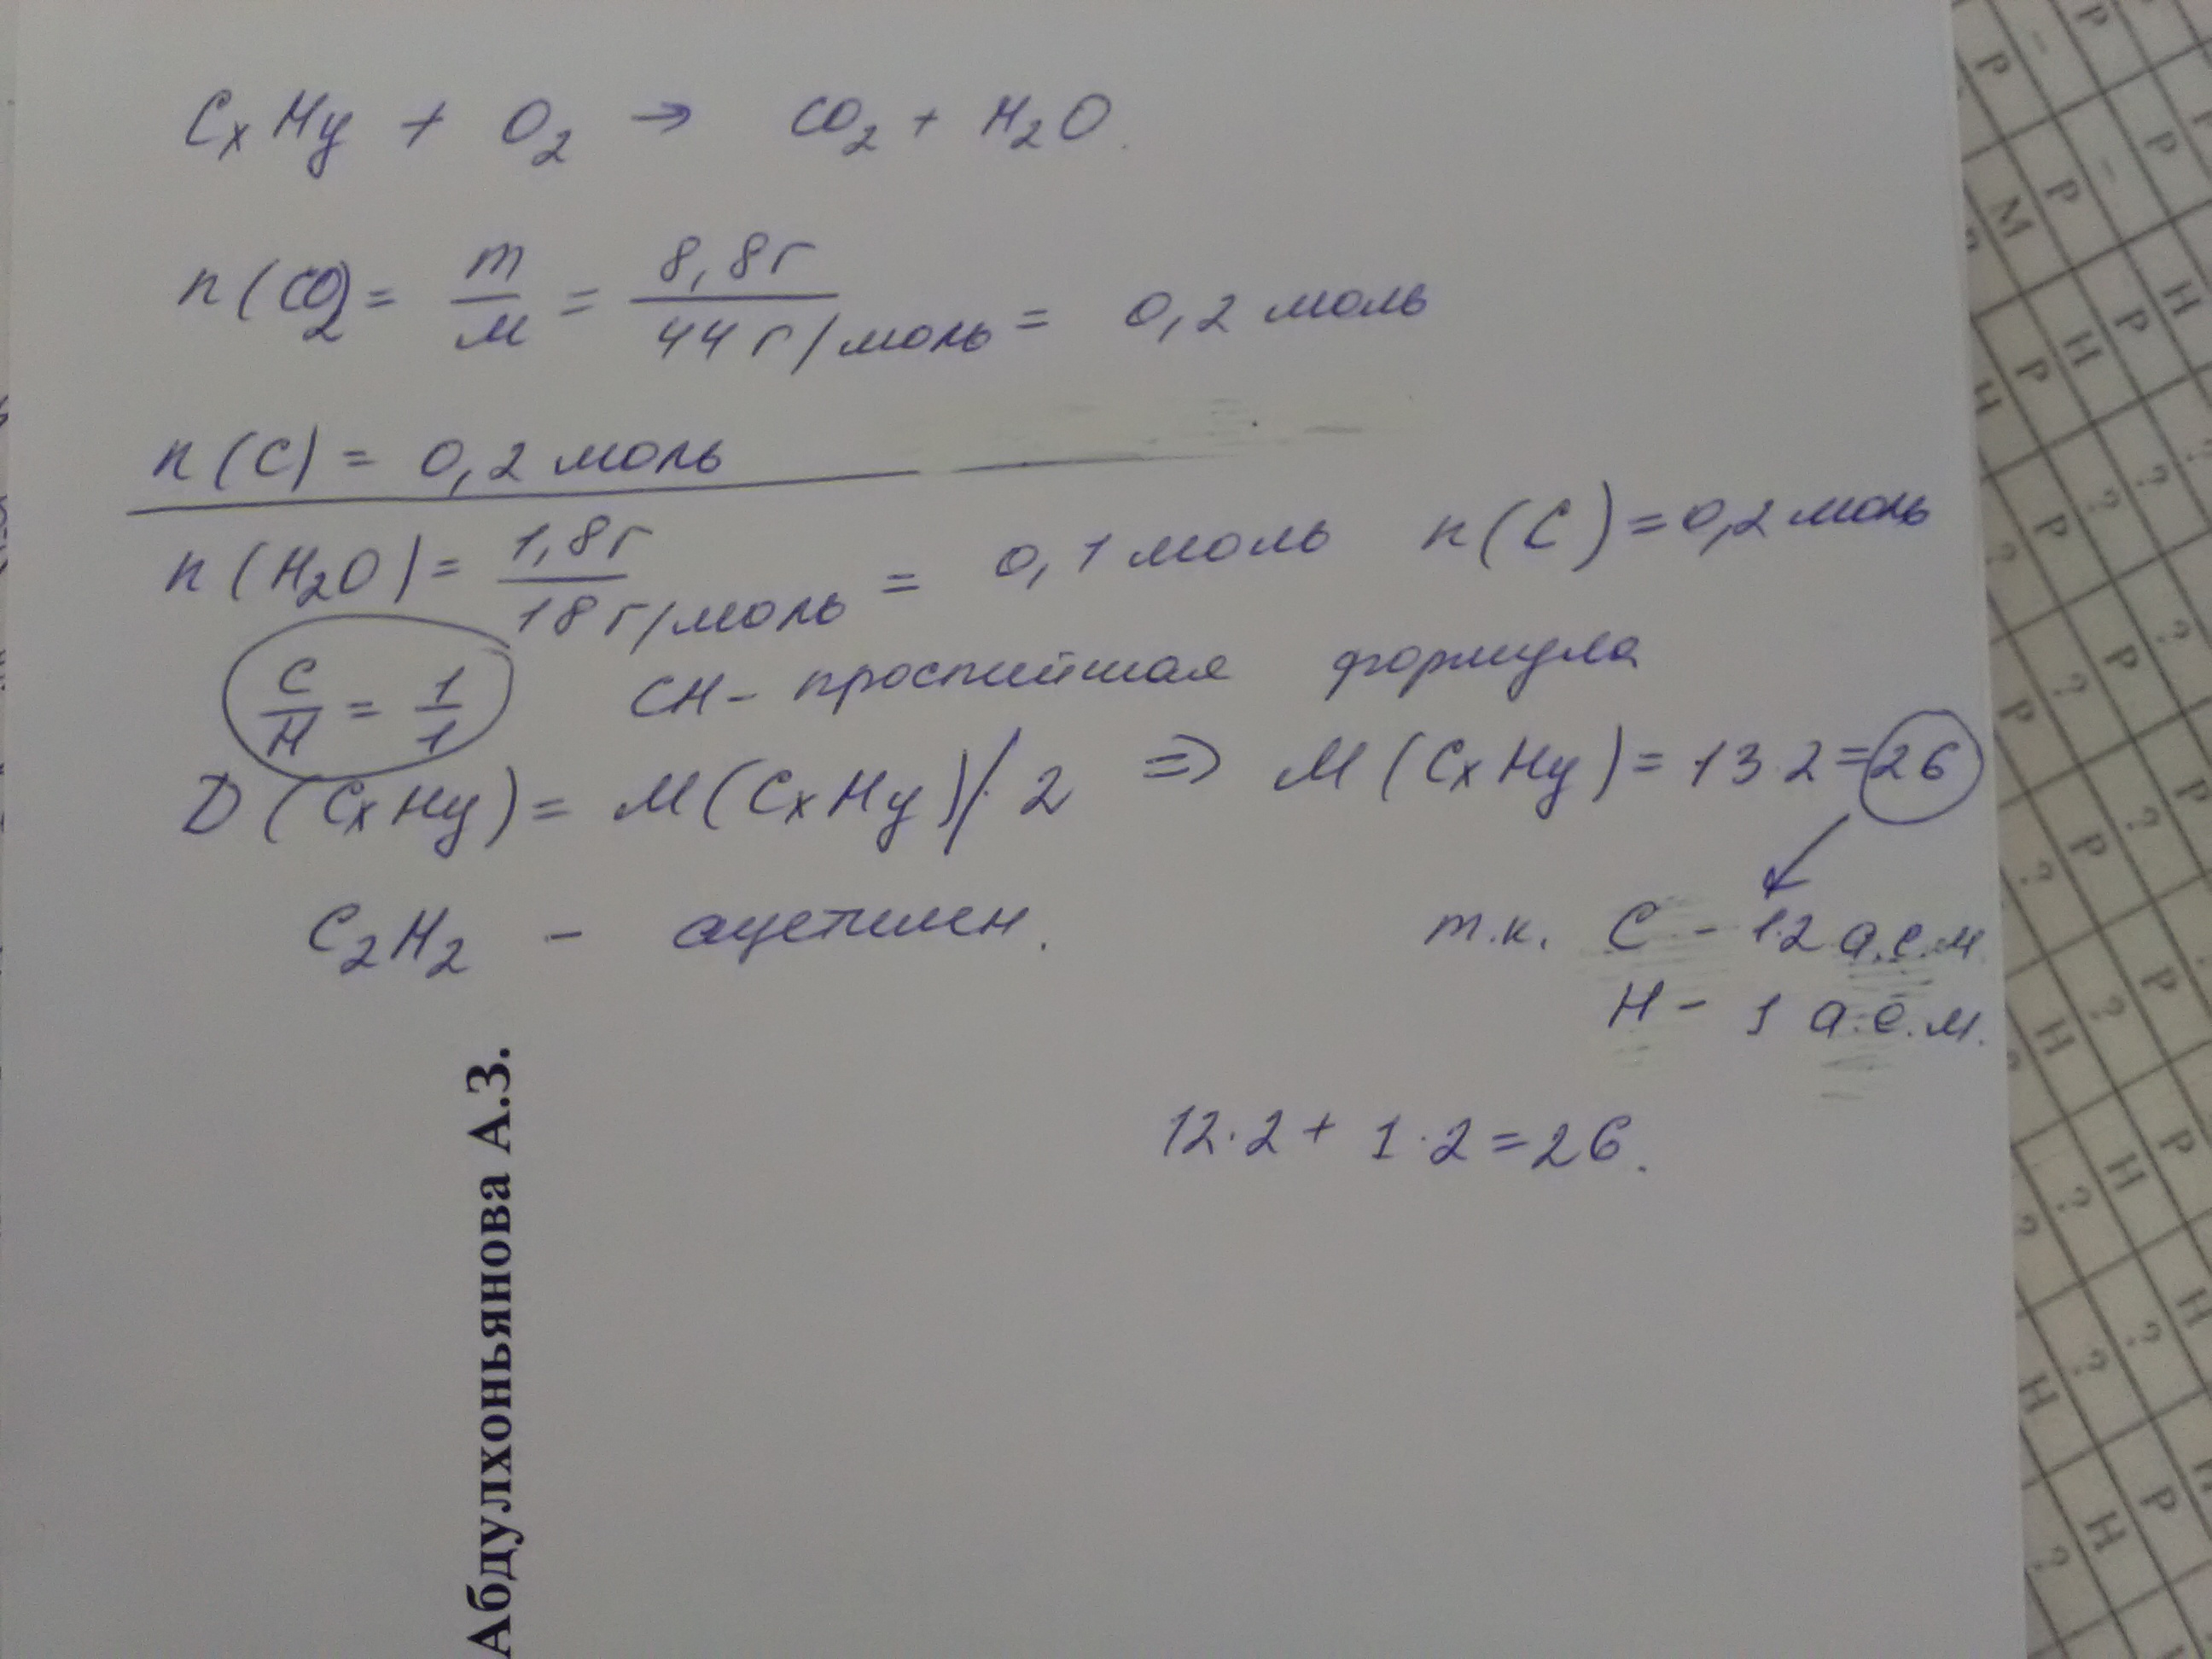 CxHy + O2 → CO2 + H2O.
n(CO2) = m/M = 8,8г/44г/моль = 0,2 моль
n(C) = 0,2 моль
n(H2O) = 1,8г/18г/моль = 0,1 моль n(C) = 0,2 моль
C/H = 1/1 CH - простейшая формула
D(CxHy) = M(CxHy)/2 ⇒ M(CxHy) = 13·2 = 26
C2H2 - ацетилен. т.к. C - 12 а.е.м.
H - 1 а.е.м.
12·2 + 1·2 = 26.
Абдулхоньянова А.З.